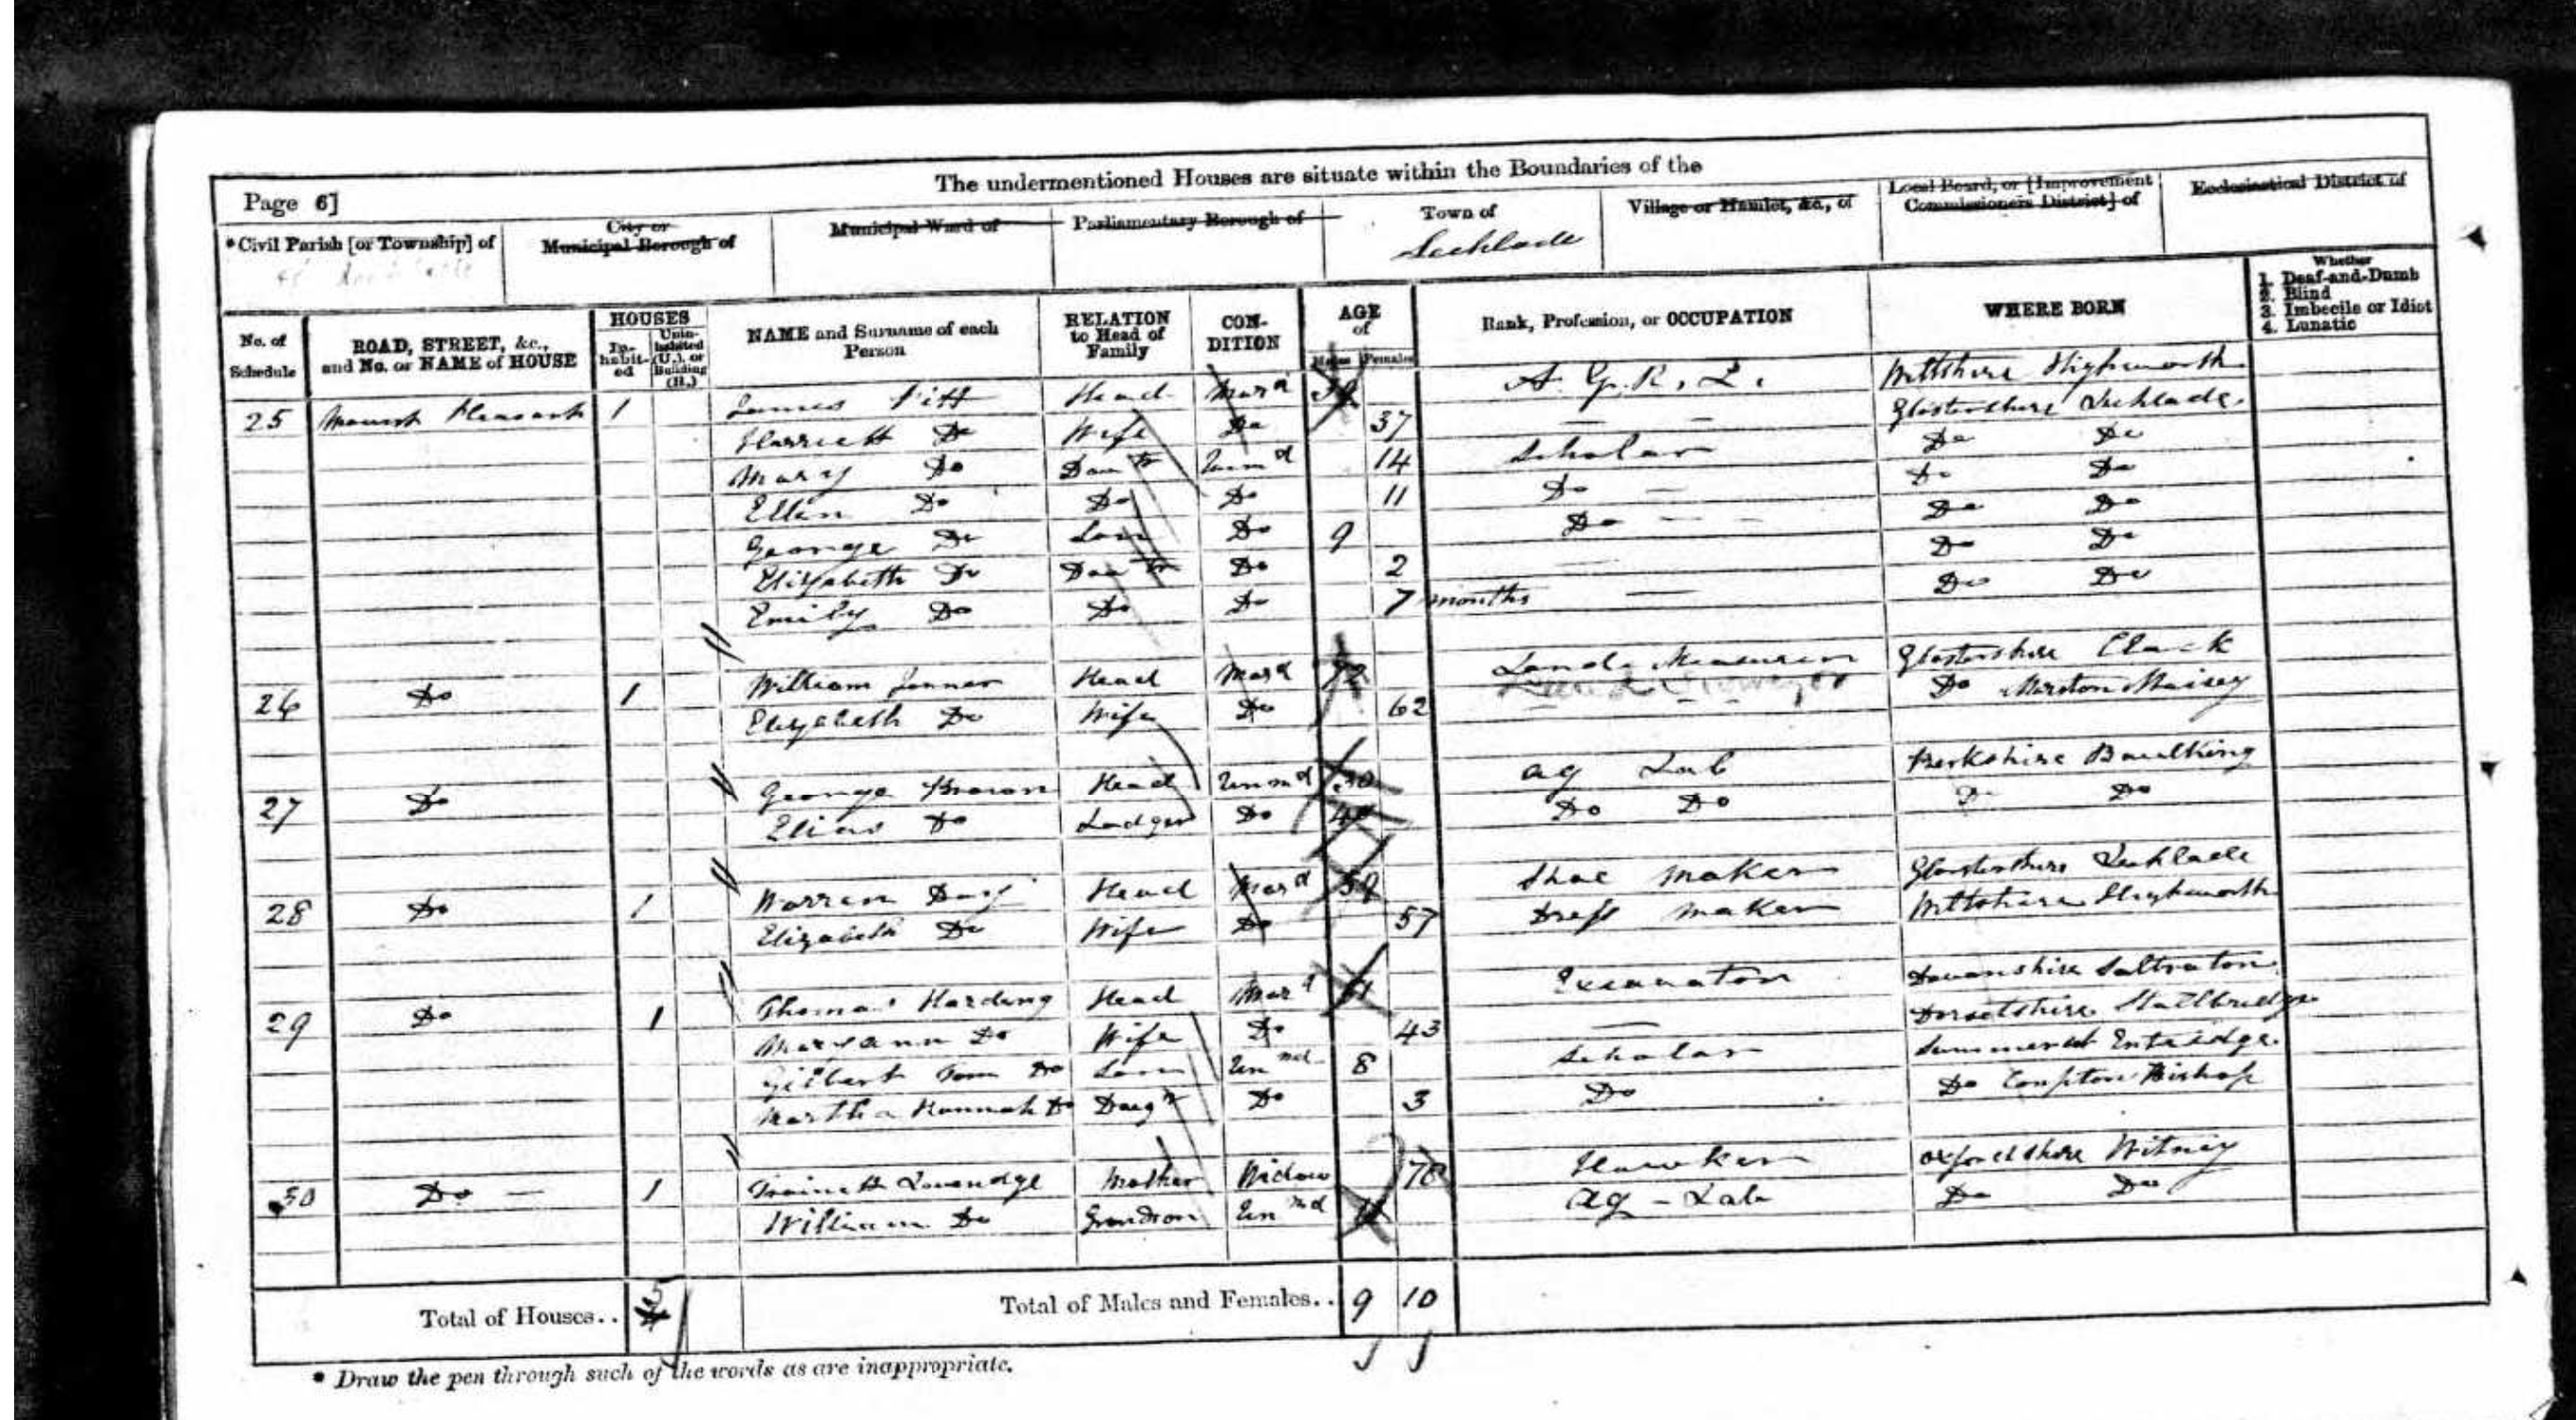 The undermentioned Houses are situate within the Boundaries of the
Page 6]
* Civil Parish [or Township] of
City or Municipal Borough of
Municipal Ward of
Parliamentary Borough of
Town of
Lechlade
Village or Hamlet, &c., of
Local Board, or [Improvement Commissioners District] of
Ecclesiastical District of
No. of Schedule
ROAD, STREET, &c., and No. or NAME of HOUSE
HOUSES
In-habit-ed
Unin-habited (U.), or Building (B.)
NAME and Surname of each Person
RELATION to Head of Family
CON-DITION
AGE of
Males Females
Rank, Profession, or OCCUPATION
WHERE BORN
Whether
1. Deaf-and-Dumb
2. Blind
3. Imbecile or Idiot
4. Lunatic
25 Mount Pleasant 1 James Head Mard A. G. R. L. Wiltshire Highworth
Harriett Do Wife Do 37 Glostershire Lechlade
Mary Do Dautr Unmd 14 Scholar Do Do
Ellen Do Do Do 11 Do Do Do
George Do Son Do 9 Do Do Do
Elizabeth Do Dautr Do 2 Do Do
Emily Do Do Do 7 months Do Do
26 Do 1 William Jenner Head Mard 72 Land Measurer Glostershire
Elizabeth Do Wife Do 62 Do Marston Maisey
27 Do George Brown Head Unmd Ag Lab Berkshire Baulking
Elias Do Lodger Do Do Do Do Do
28 Do 1 Warren Day Head Mard 59 Shoe Maker Glostershire Lechlade
Elizabeth Do Wife Do 57 Dress Maker Wiltshire Highworth
29 Do 1 Thomas Harding Head Mard Excavator Devonshire
Maryann Do Wife Do 43 Dorsetshire Stallbridge
Gilbert Tom Do Son Unmd 8 Scholar Summerset
Martha Hannah Do Daugr Do 3 Do Do Compton Bishop
30 Do 1 Mother Widow Hawker Oxfordshire Witney
William Do Grandson Unmd Ag - Lab Do Do
Total of Houses.. 5
Total of Males and Females.. 9 10
* Draw the pen through such of the words as are inappropriate.